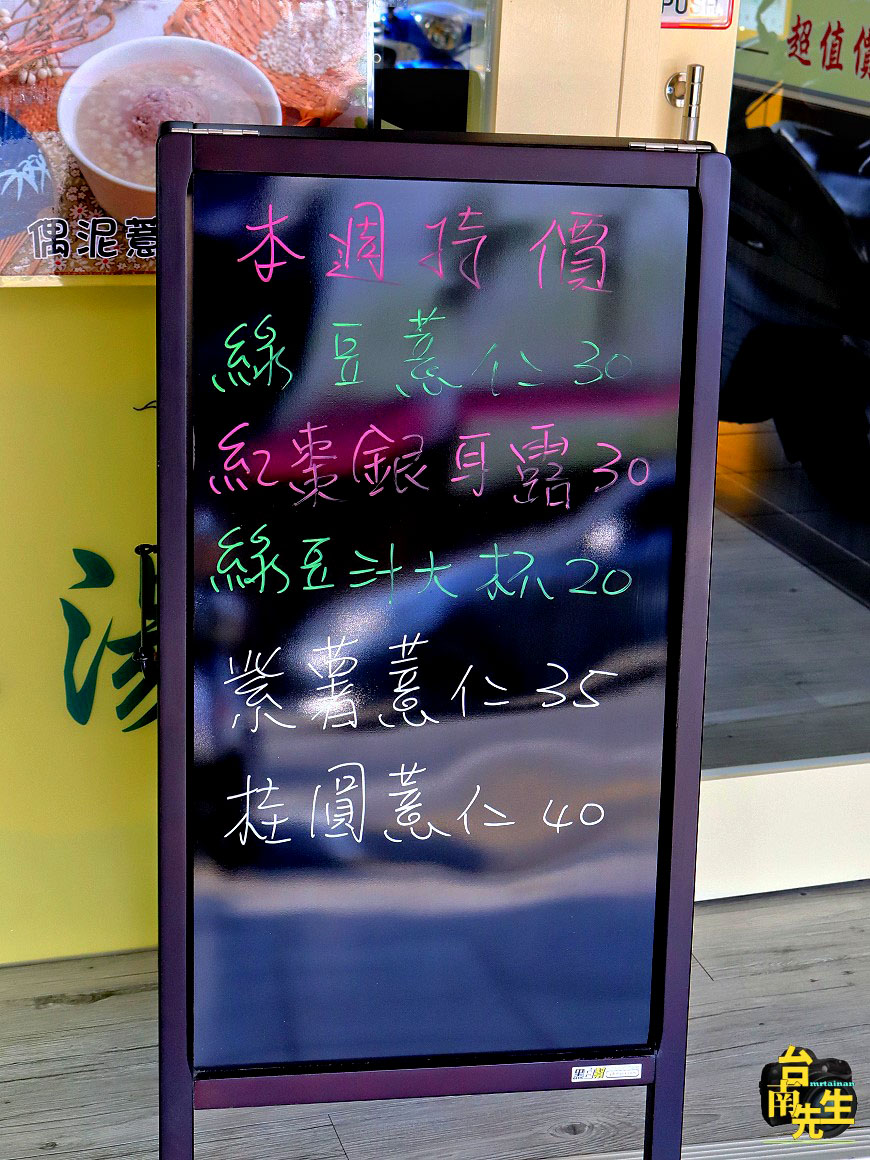 PUSH
超值價
偶泥薏
本週特價
綠豆薏仁30
紅棗銀耳露30
綠豆汁大杯20
紫薯薏仁35
桂圓薏仁40
湯
台南先生
mrtainan